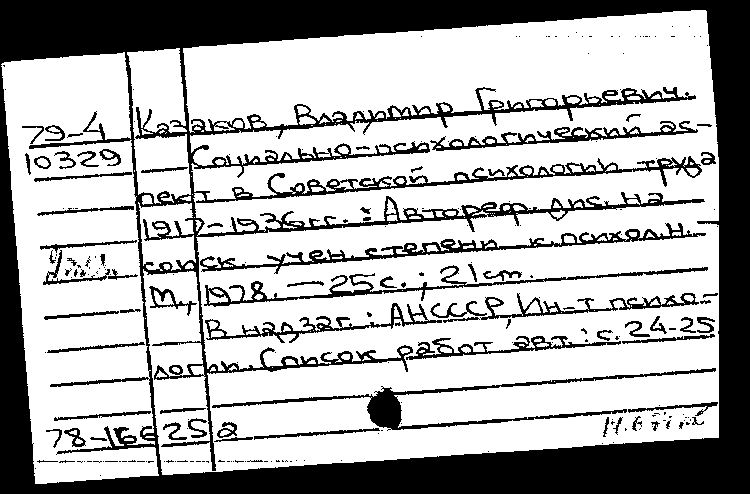 79-4 Казаков, Владимир Григорьевич.
10329 Социально-психологический ас-
пект в Советской психологии труда
1917-1936гг. : Автореф. дис. на
соиск. учен. степени к.психол.н. -
М., 1978. — 25 с. ; 21 cm.
В надзаг. : АН СССР, Ин-т психо-
логии. Список работ авт. : с. 24-25
78-16625 а